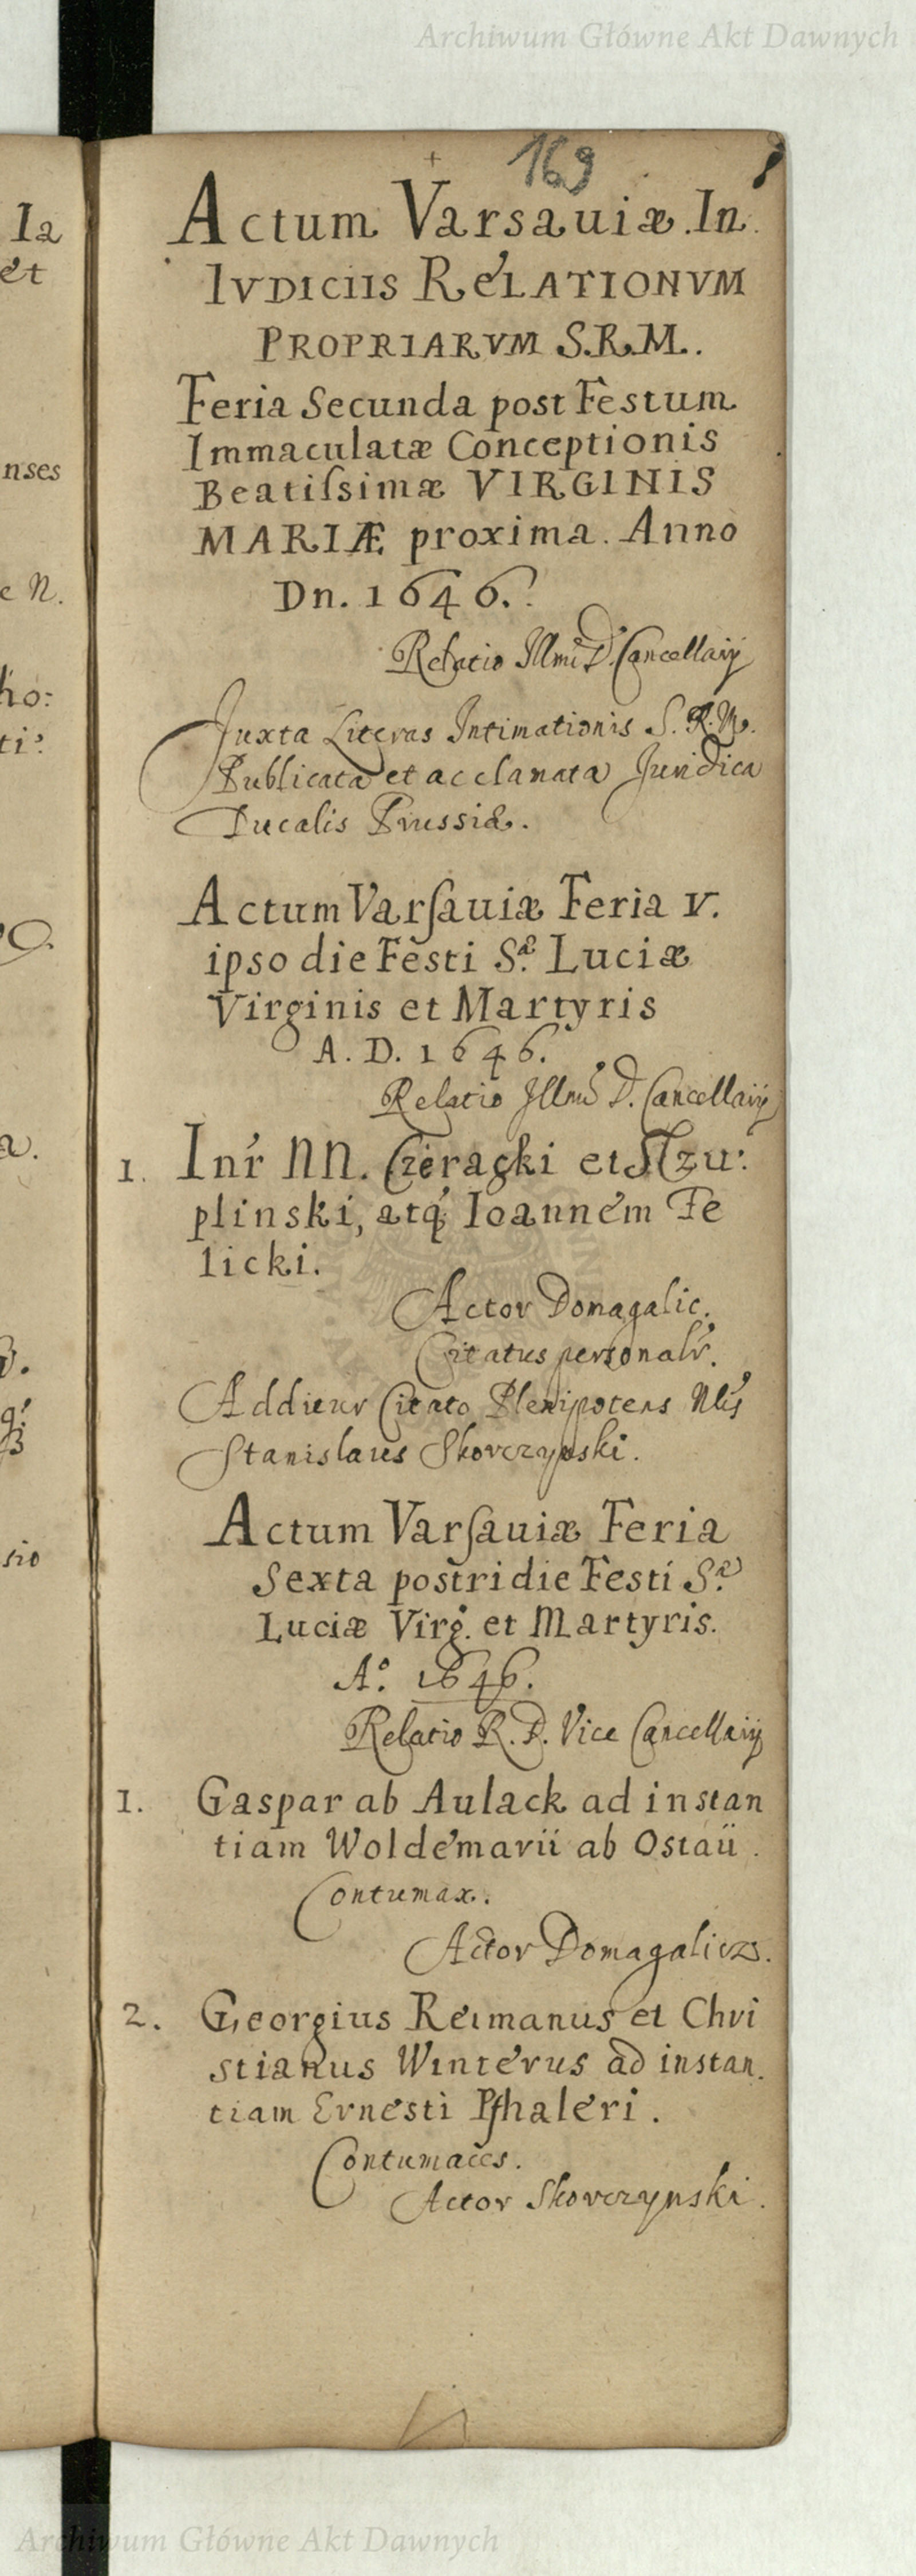 Archiwum Główne Akt Dawnych
169
Ia
et
nses
e N.
ho:
ti:
a.
sio
Actum Varsauiæ. In.
IVDICIIS RELATIONVM
PROPRIARVM S.R.M..
Feria Secunda post Festum
Immaculatæ Conceptionis
Beatiſsimæ VIRGINIS
MARIÆ proxima. Anno
Dn. 1646.
Relatio Illmi D. Cancellarij
Juxta Literas Intimationis S. R. M.
Publicata et acclamata Juridica
Ducalis Prussiæ.
Actum Varſauiæ Feria V.
ipso die Festi S.æ Luciæ
Virginis et Martyris
A. D. 1646.
Relatio Illmi D. Cancellarij
1. Inr NN. Czieracki et Szu:
plinski, atq́ Ioannem Fe
licki.
Actor Domagalic.
Citatus personalr.
Additur Citato Plenipotens Nlis
Stanislaus Skorczynski.
Actum Varſauiæ Feria
Sexta postridie Festi S.æ
Luciæ Virg. et Martyris.
Aº. 1646.
Relatio R. D. Vice Cancellarij
1. Gaspar ab Aulack ad instan
tiam Woldemarii ab Ostaü.
Contumax.
Actor Domagalicz.
2. Georgius Reimanus et Chri
stianus Winterus ad instan.
tiam Ernesti Pfhaleri.
Contumaces.
Actor Skorczynski.
Archiwum Główne Akt Dawnych